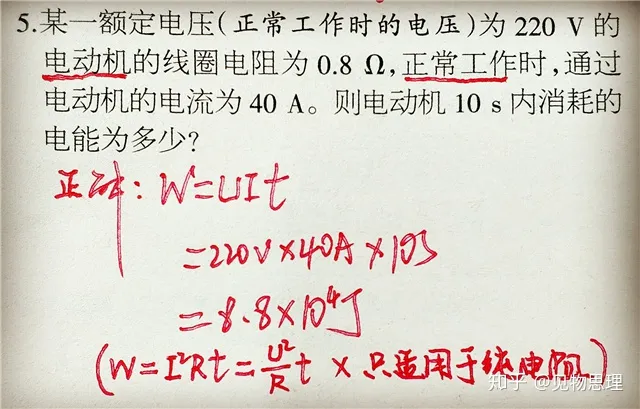 5.某一额定电压(正常工作时的电压)为 220 V 的
电动机的线圈电阻为 0.8 Ω,正常工作时,通过
电动机的电流为 40 A。则电动机 10 s 内消耗的
电能为多少?
正确: W=UIt
=220V×40A×10s
=8.8×10⁴J
(W=I²Rt=U²/R t × 只适用于纯电阻)
知乎 @见物思理